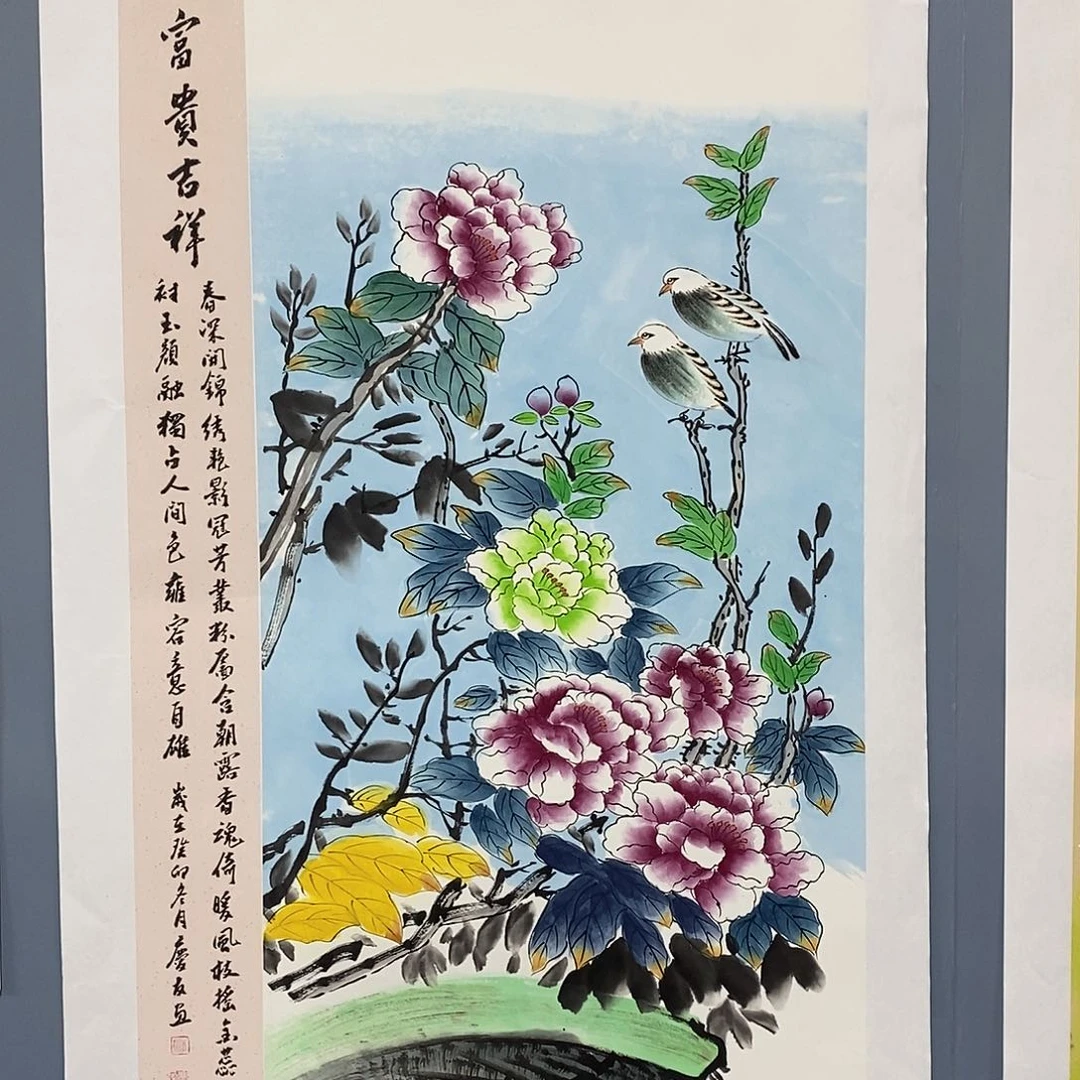 富貴吉祥
春深開錦绣艳影冠芳叢粉靥含朝露香魂倚暖風枝摇金蕊
衬玉顔融獨占人间色雍容意自雄
歲在癸卯冬月慶友画